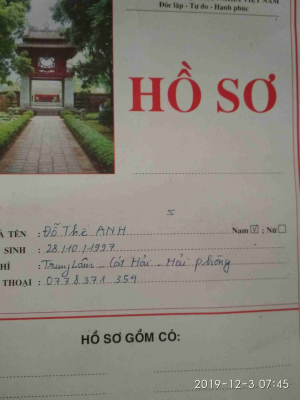 VIỆT NAM
Độc lập - Tự do - Hạnh phúc
HỒ SƠ
TÊN : Đỗ Thế ANH Nam ☑ ; Nữ ☐
SINH : 28/10/1997
: Trung Lâm - Cát Hải - Hải phòng
THOẠI : 0778 371 354
HỒ SƠ GỒM CÓ:
2019-12-3 07:45